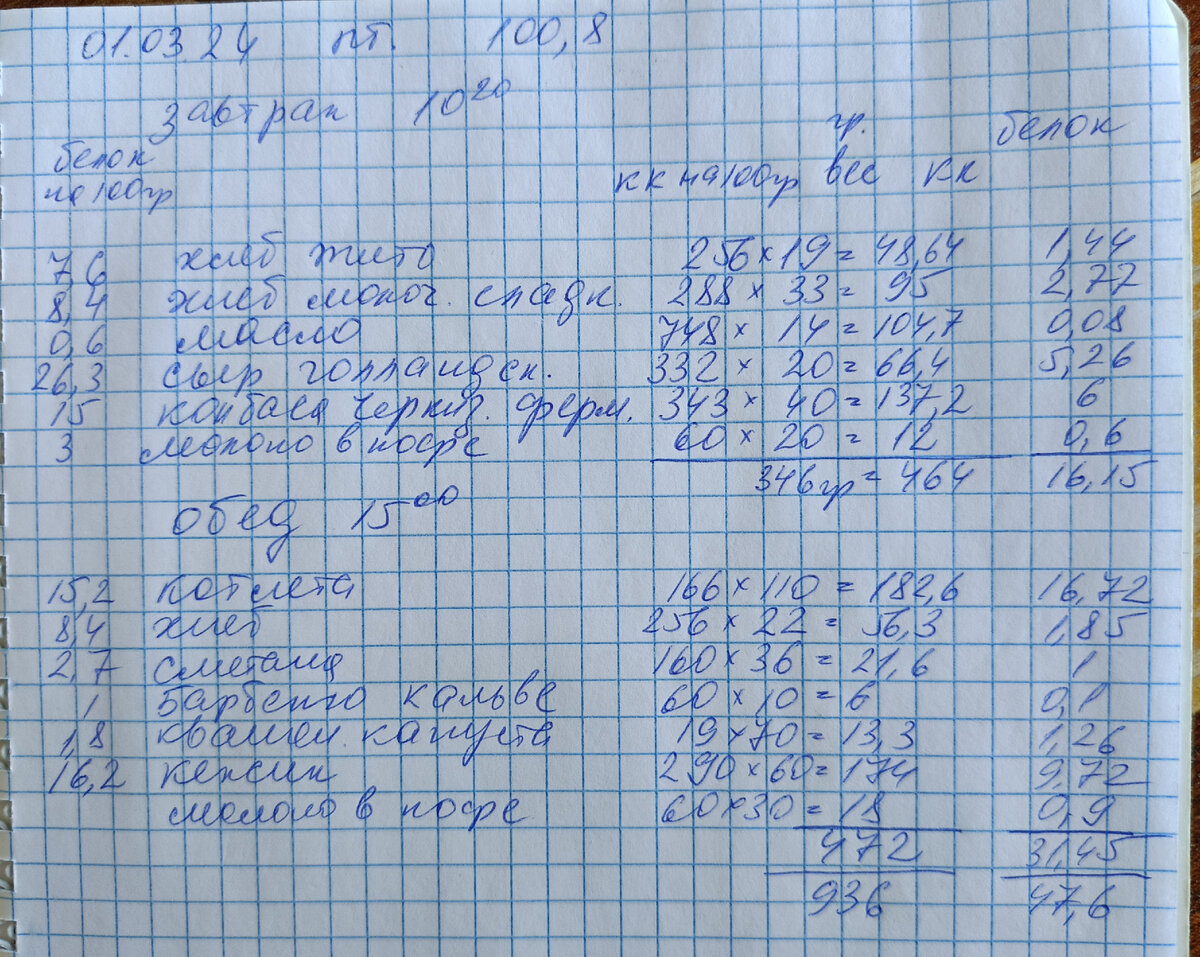 01.03.24 пт. 100,8
Завтрак 10²⁰
белок на 100гр ккна100гр гр. вес кк белок
7,6 хлеб жито 256 × 19 = 48,64 1,44
8,4 хлеб молоч. сладк. 288 × 33 = 95 2,77
0,6 масло 748 × 14 = 104,7 0,08
26,3 сыр голландск. 332 × 20 = 66,4 5,26
15 колбаса черкиз. ферм. 343 × 40 = 137,2 6
3 молоко в кофе 60 × 20 = 12 0,6
346гр = 464 16,15
обед 15⁰⁰
15,2 котлета 166 × 110 = 182,6 16,72
8,4 хлеб 256 × 22 = 56,3 1,85
2,7 сметана 160 × 36 = 21,6 1
1 Барбекю кальве 60 × 10 = 6 0,1
1,8 квашен. капуста 19 × 70 = 13,3 1,26
16,2 кексик 290 × 60 = 174 9,72
молоко в кофе 60 × 30 = 18 0,9
472 31,45
936 47,6